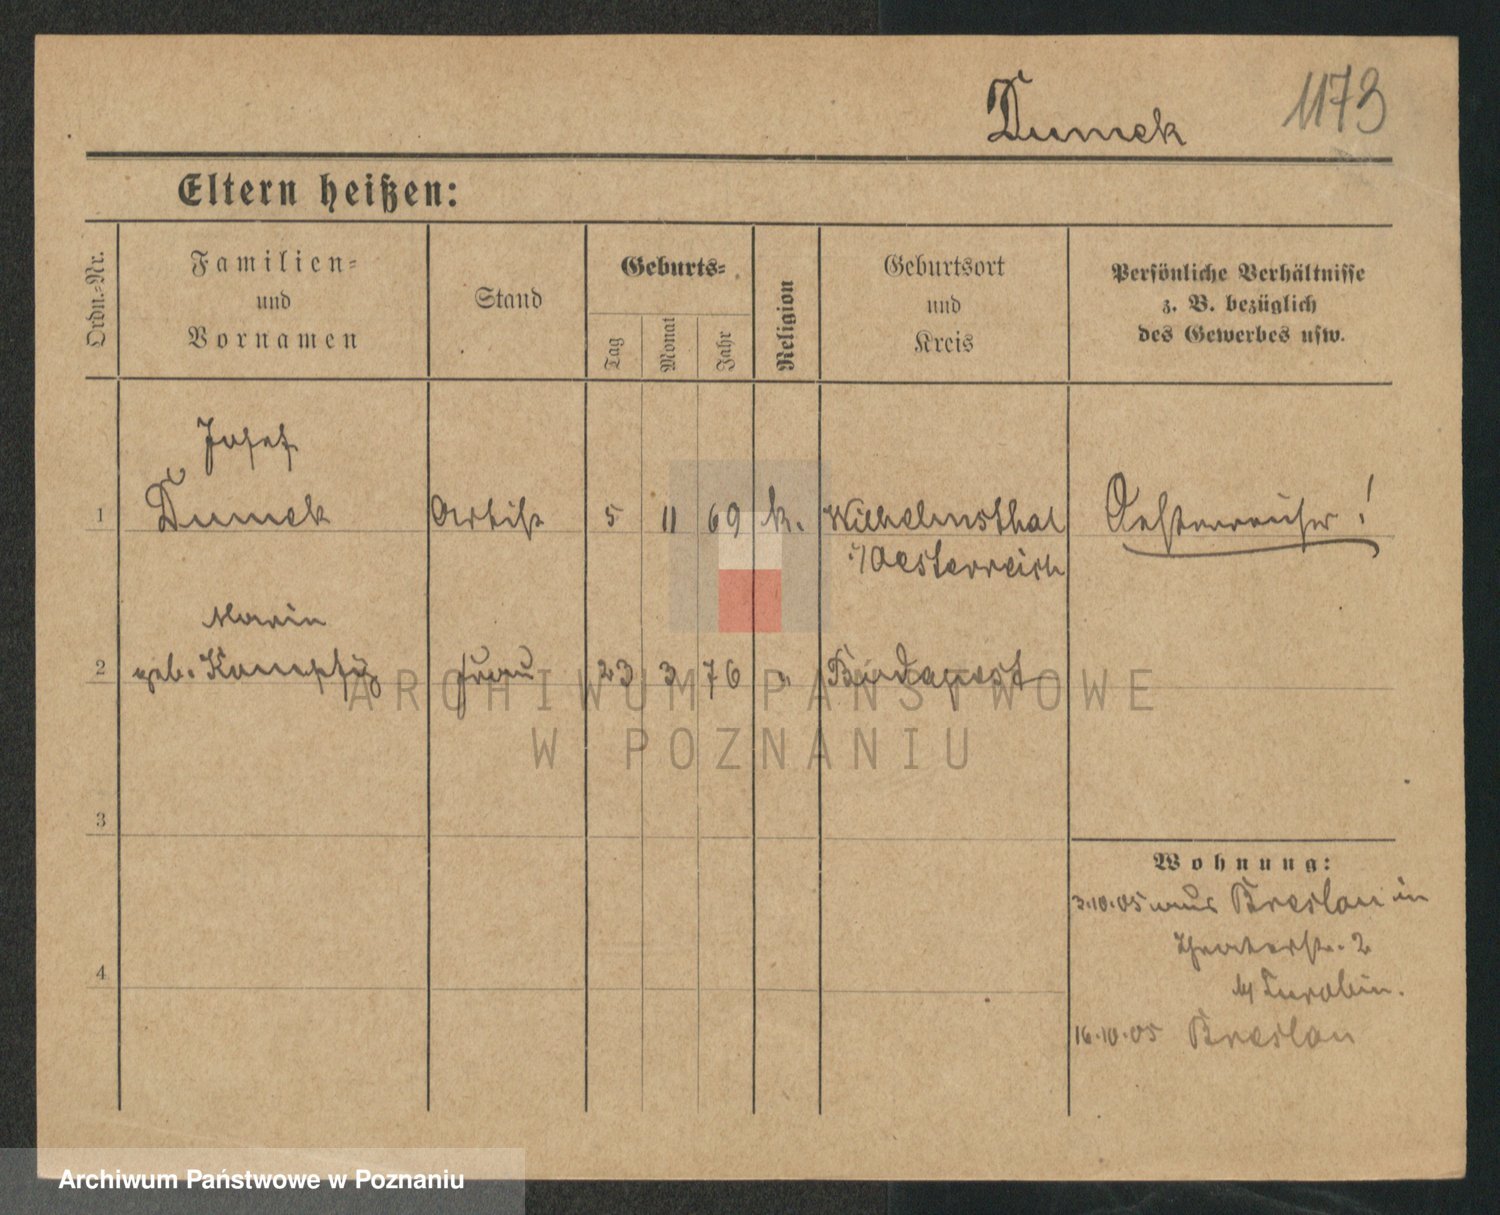 Dumek 1173
Eltern heißen:
Ordn.-Nr.
Familien-
und
Vornamen
Stand
Geburts-
Tag
Monat
Jahr
Religion
Geburtsort
und
Kreis
Persönliche Verhältnisse
z. B. bezüglich
des Gewerbes usw.
Josef
1 Dumek Artist 5 11 69 k. Wilhelmsthal Oesterreicher!
i/Oesterreich
Marie
2 geb. Frau 23 3 76 " Budapest
3
4
Wohnung:
3.10.05 aus Breslau in
Theaterstr. 2
b/
16.10.05 Breslau
ARCHIWUM PAŃSTWOWE
W POZNANIU
Archiwum Państwowe w Poznaniu